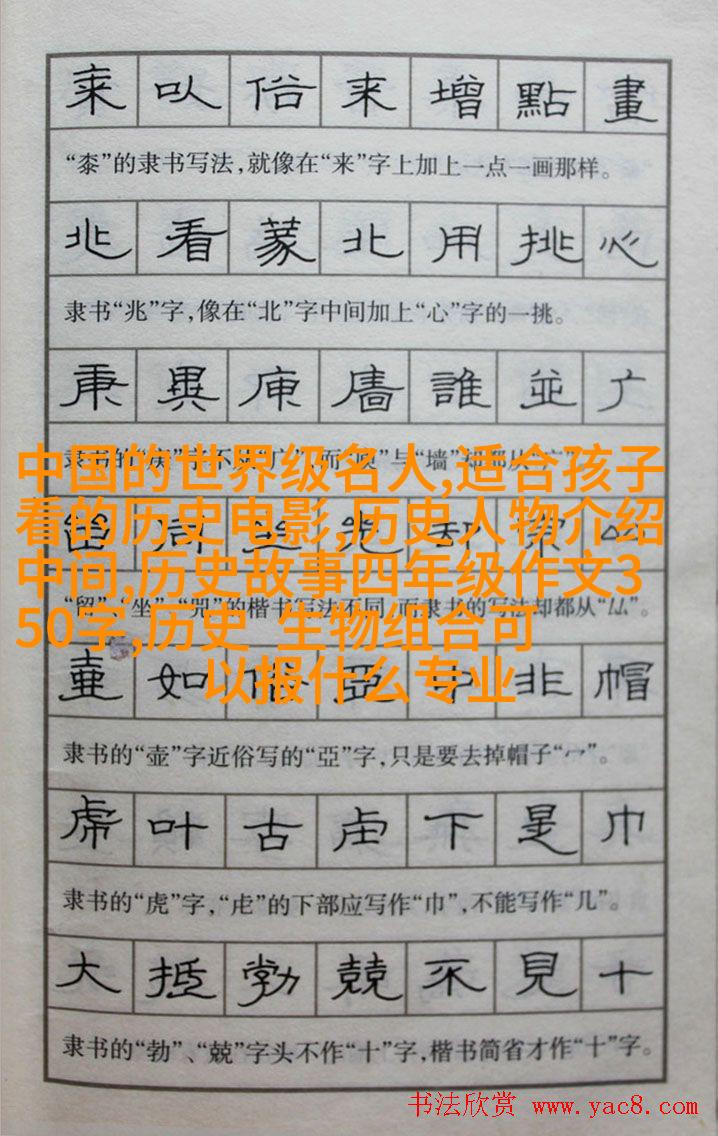 来 㕥 俗 来 增 點 畫
“桼”的隶书写法,就像在“来”字上加上一点一画那样。
兆 看 篆 北 用 挑 心
隶书“兆”字,像在“北”字中间加上“心”字的一挑。
庚 異 庫 廧 誰 並 广
中国的世界级名人,适合孩子
看的历史电影,历史人物介绍
中间,历史故事四年级作文3
50字,历史 生物组合可
以报什么专业
“留”“坐”“兕”的楷书写法不同,而隶书的写法却都从“厸”。
壷 如 俗 亞 中 非 帽
隶书的“壶”字近俗写的“亞”字,只是要去掉帽子“冖”。
虎 叶 古 虍 下 是 巾
隶书的“虎”字,“虍”的下部应写作“巾”,不能写作“几”。
大 抵 勃 兢 不 見 十
隶书的“勃”、“兢”字头不作“十”字,楷书简省才作“十”字。
书法欣赏 www.yac8.com